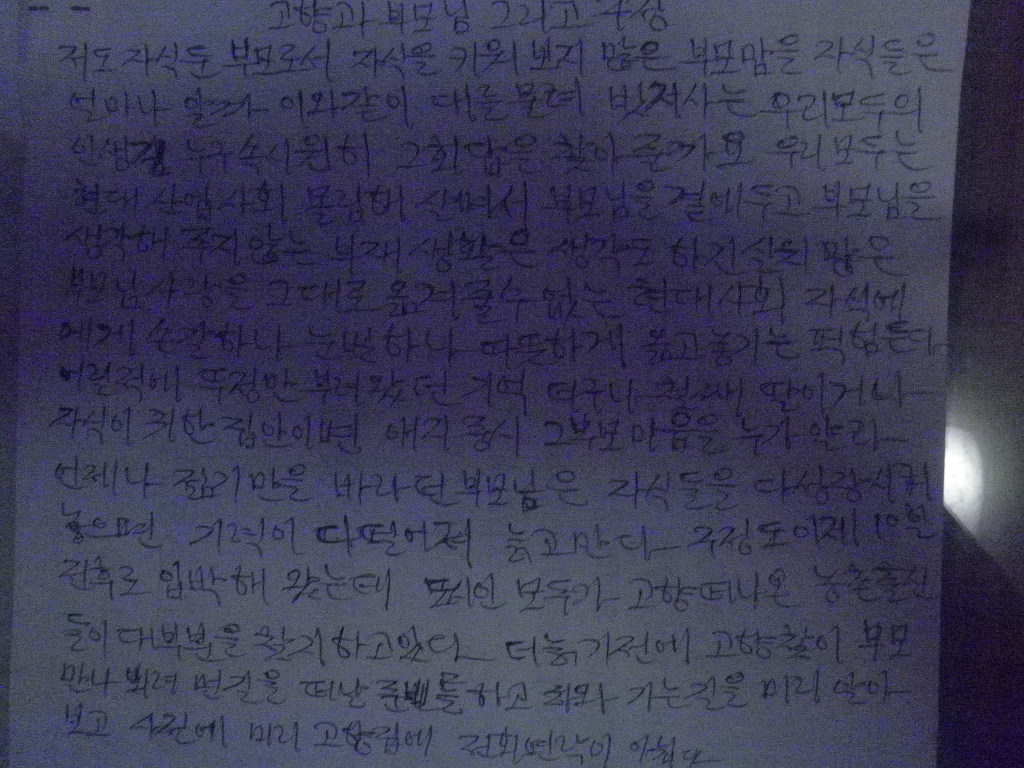 고향과 부모님 그리고 구상
저도 자식둔 부모로서 자식을 키워 보지 많은 부모맘을 자식들은
얼마나 알까 이와같이 대를물려 빗져사는 우리모두의
인생길 누구속시원히 그회답을 찾아 준가요 우리모두는
현대 산업사회 몰림해 살며서 부모님을 곁에두고 부모님을
생각해 주지않는 부재 생활은 생각도 하긴실의 많은
부모님사랑을 그대로 옮겨줄수 없는 현대사회 자식에
에게 손갈하나 눈빛하나 따뜻하게 옮고놓기는 퍽힘든다
어릴적에 뚜정만 부려왔던 기억 더구나 딸이거나
자식이 귀한 집안이면 애지중시 그부모마음을 누가 알랴
언제나 젊기만을 바라던부모님은 자식들을 다성장시켜
놓으면 기력이 다떨어져 늙고만다 구정도이제 10일
전후로 임박해 왔는데 모두가 고향떠나온 농촌출신
들이대부분을 찾지하고있다 더늙기전에 고향찾아 부모
만나 뵈려 먼길을 떠난 준비를하고 차와 가는길을 미리 알아
보고 사전에 미리 고향집에 전회연락이